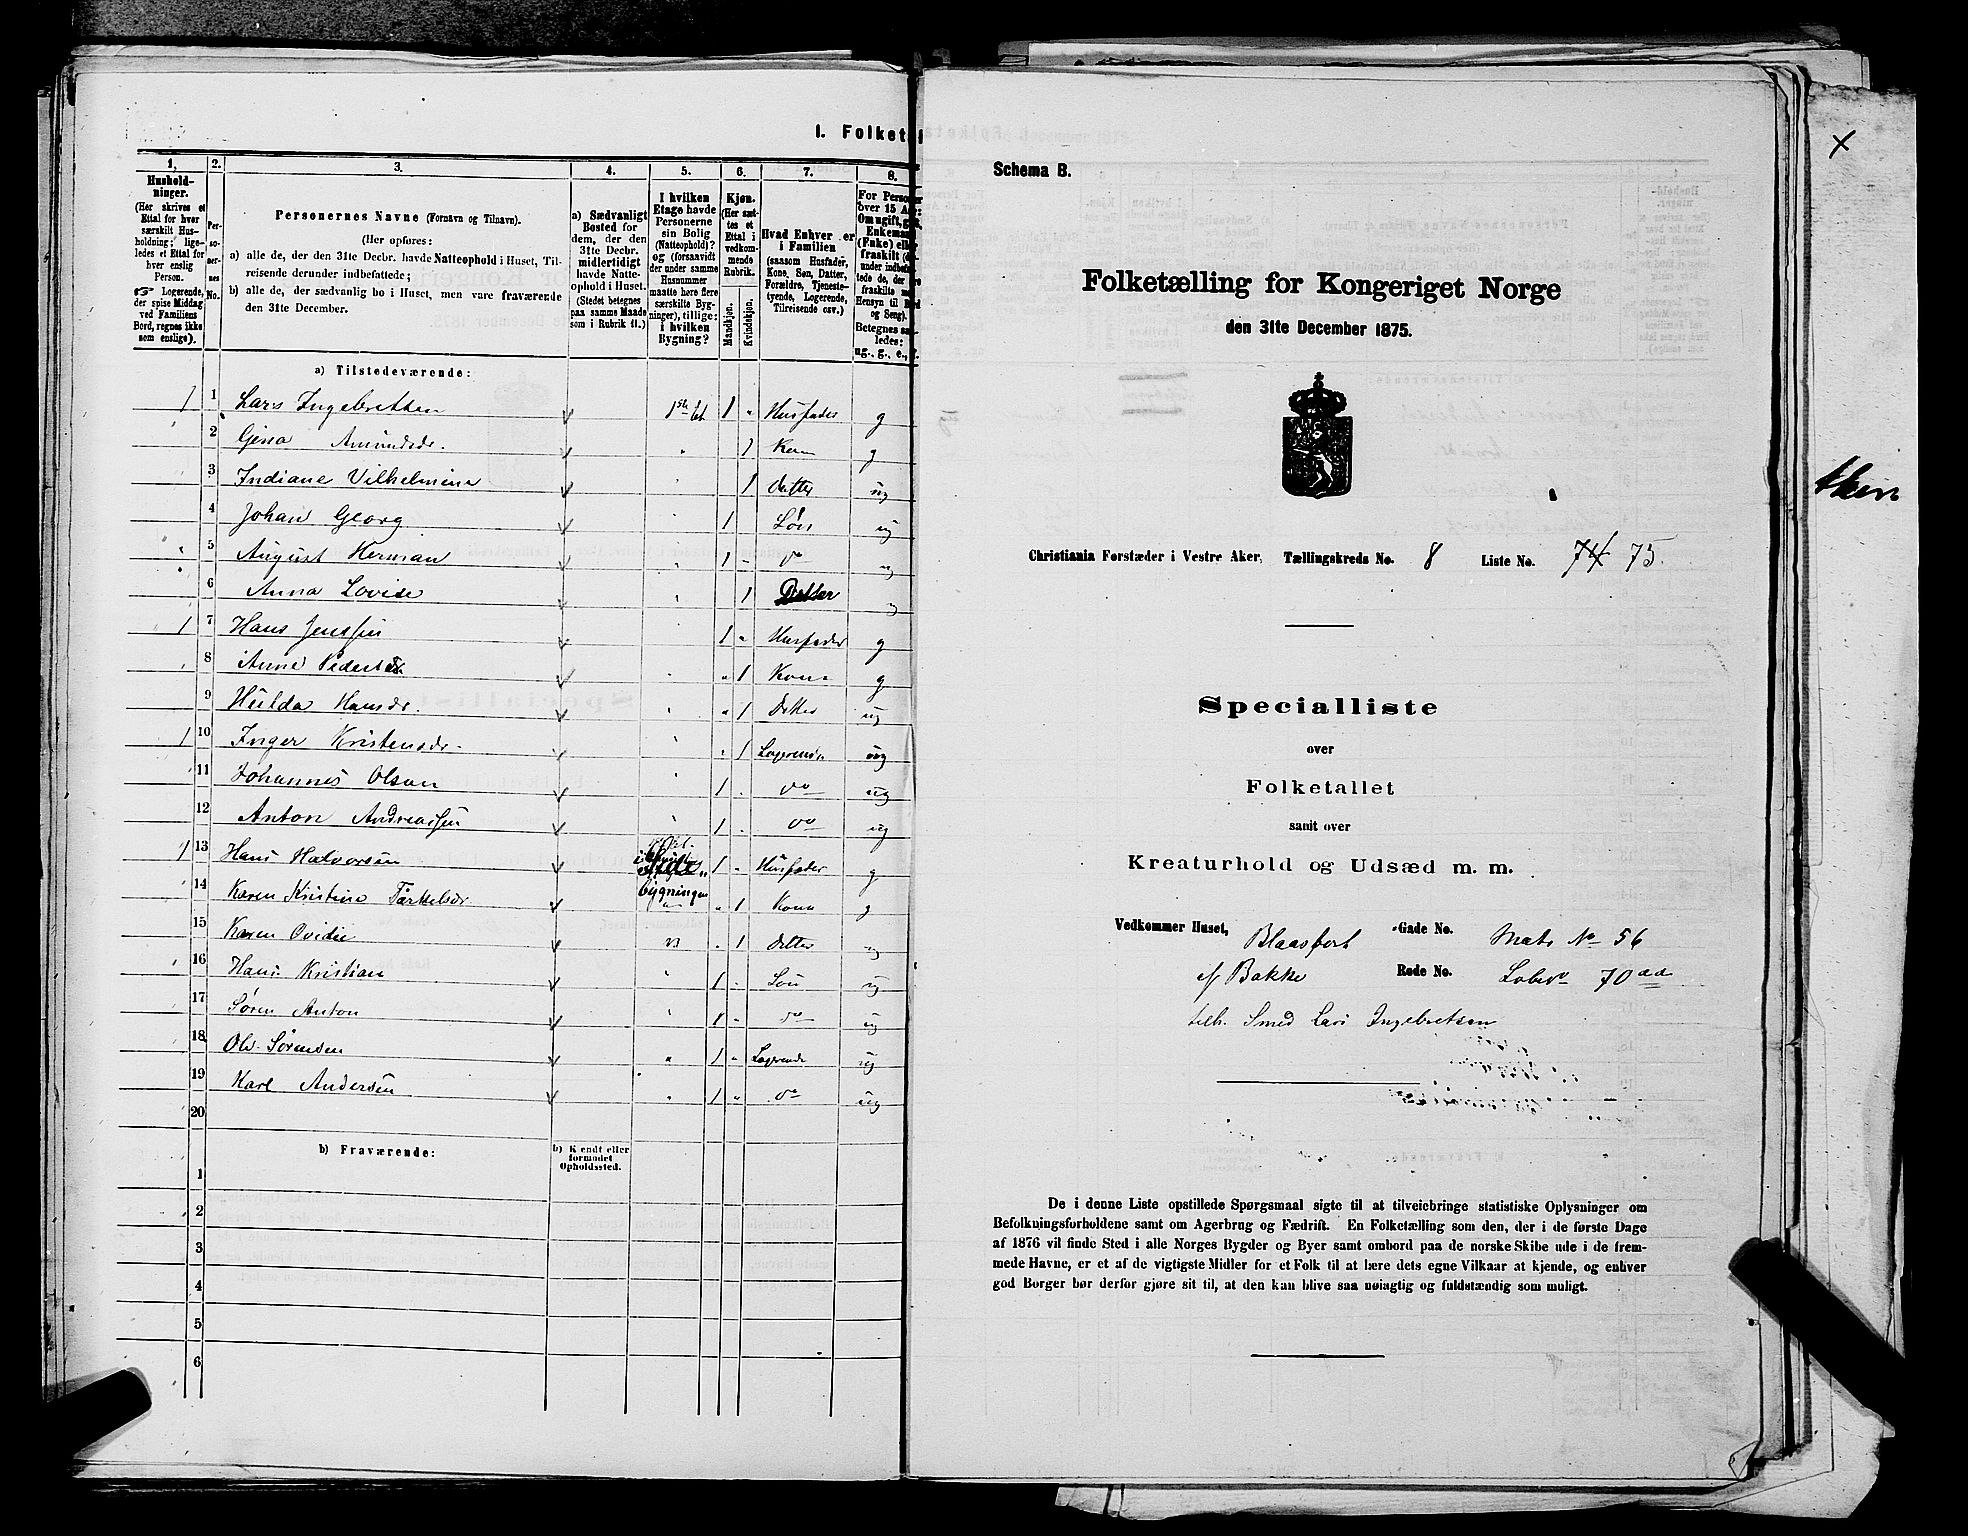 I. Folket
1, 2. 3. 4. 5. 6. 7. 8.
Hushold-
ninger.
(Her skrives et
Ettal for hver
særskilt Hus-
holdning; lige-
ledes et Ettal for
hver enslig
Person.
☞ Logerende,
der spise Middag
ved Familiens
Bord, regnes ikke
som enslige).
Per-
so-
ner-
nes
No.
Personernes Navne (Fornavn og Tilnavn).
(Her opføres:
a) alle de, der den 31te Decbr. havde Natteophold i Huset, Til-
reisende derunder indbefattede;
b) alle de, der sædvanlig bo i Huset, men vare fraværende
den 31te December.
a) Sædvanligt
Bosted for
dem, der den
31te Decbr.
midlertidigt
havde Natte-
ophold i Huset.
(Stedet betegnes
paa samme Maade
som i Rubrik 11.)
I hvilken
Etage havde
Personerne
sin Bolig
(Natteophold)?
og (forsaavidt
der under samme
Husnummer
maatte høre flere
særskilte Byg-
ninger), tillige:
i hvilken
Bygning?
Kjøn.
(Her sæt-
tes et
Ettal i
vedkom-
mende
Rubrik.
Mandkjøn.
Kvindekjøn.
Hvad Enhver er
i Familien
(saasom Husfader,
Kone, Søn, Datter,
Forældre, Tjeneste-
tyende, Logerende,
Tilreisende osv.)
For Person
over 15 Aar:
Om ugift, gift,
Enkema
(Enke) elle
fraskilt
under indbe
tede de, der
fraskilte
Hensyn til Bord
og Seng).
Betegnes saa
ledes:
ug., g., e.,
a) Tilstedeværende:
1 1 Lars Ingebretsen 1ste Et 1 " Husfader g
2 Gina Amundsdr. " 1 Kone g
3 Indiane Vilhelmine " 1 Datter ug
4 Johan Georg " 1 Søn ug
5 August Herman " 1 " do ug
6 Anna Lovise " 1 Datter ug
1 7 Hans Jenssen 1 " Husfader g
8 Anne Pedersdr. " 1 Kone g
9 Hulda Hansdr. " 1 Datter ug
1 10 Inger Kristensdr. " 1 Logerende ug
11 Johannes Olsen 1 " do ug
12 Anton Andreassen 1 " do ug
1 13 Hans Halvorsen bygningen 1 " Husfader g
14 Karen Kristine Tarkelsdr " 1 Kone g
15 Karen Ovidie " 1 Datter ug
16 Hans Kristian 1 " Søn ug
17 Søren Anton 1 " do ug
18 Ole Sørensen " 1 " Logerende ug
19 Karl Andersen " 1 " do ug
20
b) Fraværende:
b) Kjendt eller
formodet
Opholdssted.
1
2
3
4
5
6
Schema B.
Folketælling for Kongeriget Norge
den 31te December 1875.
Christiania Forstæder i Vestre Aker, Tællingskreds No. 8 Liste No. 74 75.
Specialliste
over
Folketallet
samt over
Kreaturhold og Udsæd m. m.
Vedkommer Huset, Blaasfort Gade No. Matr No 56
af Bakke Rode No. Løbno 70 dd
tilh. Smed Lars Ingebretsen
De i denne Liste opstillede Spørgsmaal sigte til at tilveiebringe statistiske Oplysninger om
Befolkningsforholdene samt om Agerbrug og Fædrift. En Folketælling som den, der i de første Dage
af 1876 vil finde Sted i alle Norges Bygder og Byer samt ombord paa de norske Skibe ude i de frem-
mede Havne, er et af de vigtigste Midler for et Folk til at lære dets egne Vilkaar at kjende, og enhver
god Borger bør derfor gjøre sit til, at den kan blive saa nøiagtig og fuldstændig som muligt.